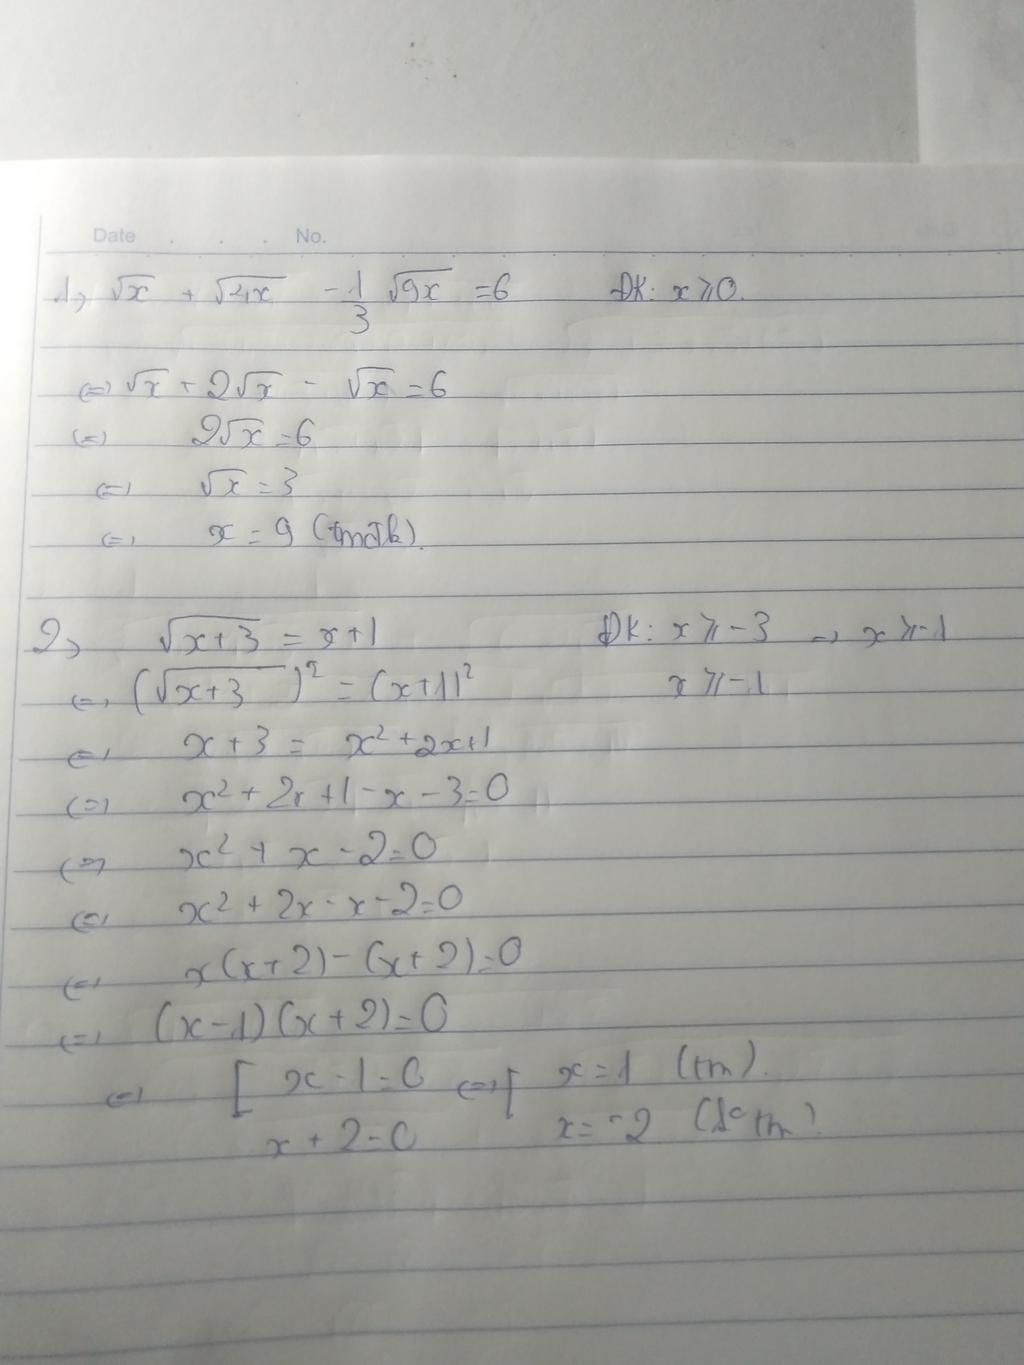 Date . . . No.
1, √x + √4x - 1/3 √9x = 6 ĐK: x ⩾ 0.
<=> √x + 2√x - √x = 6
<=> 2√x = 6
<=> √x = 3
<=> x = 9 (tmđk).
2, √x+3 = x+1 ĐK: x ⩾ -3 => x ⩾ -1
<=> (√x+3)² = (x+1)² x ⩾ -1
<=> x + 3 = x² + 2x+1
<=> x² + 2x +1 - x - 3 = 0
<=> x² + x - 2 = 0
<=> x² + 2x - x - 2 = 0
<=> x(x+2) - (x+2) = 0
<=> (x-1)(x+2) = 0
<=> [ x - 1 = 0 <=> [ x = 1 (tm).
x + 2 = 0 x = -2 (ko tm)